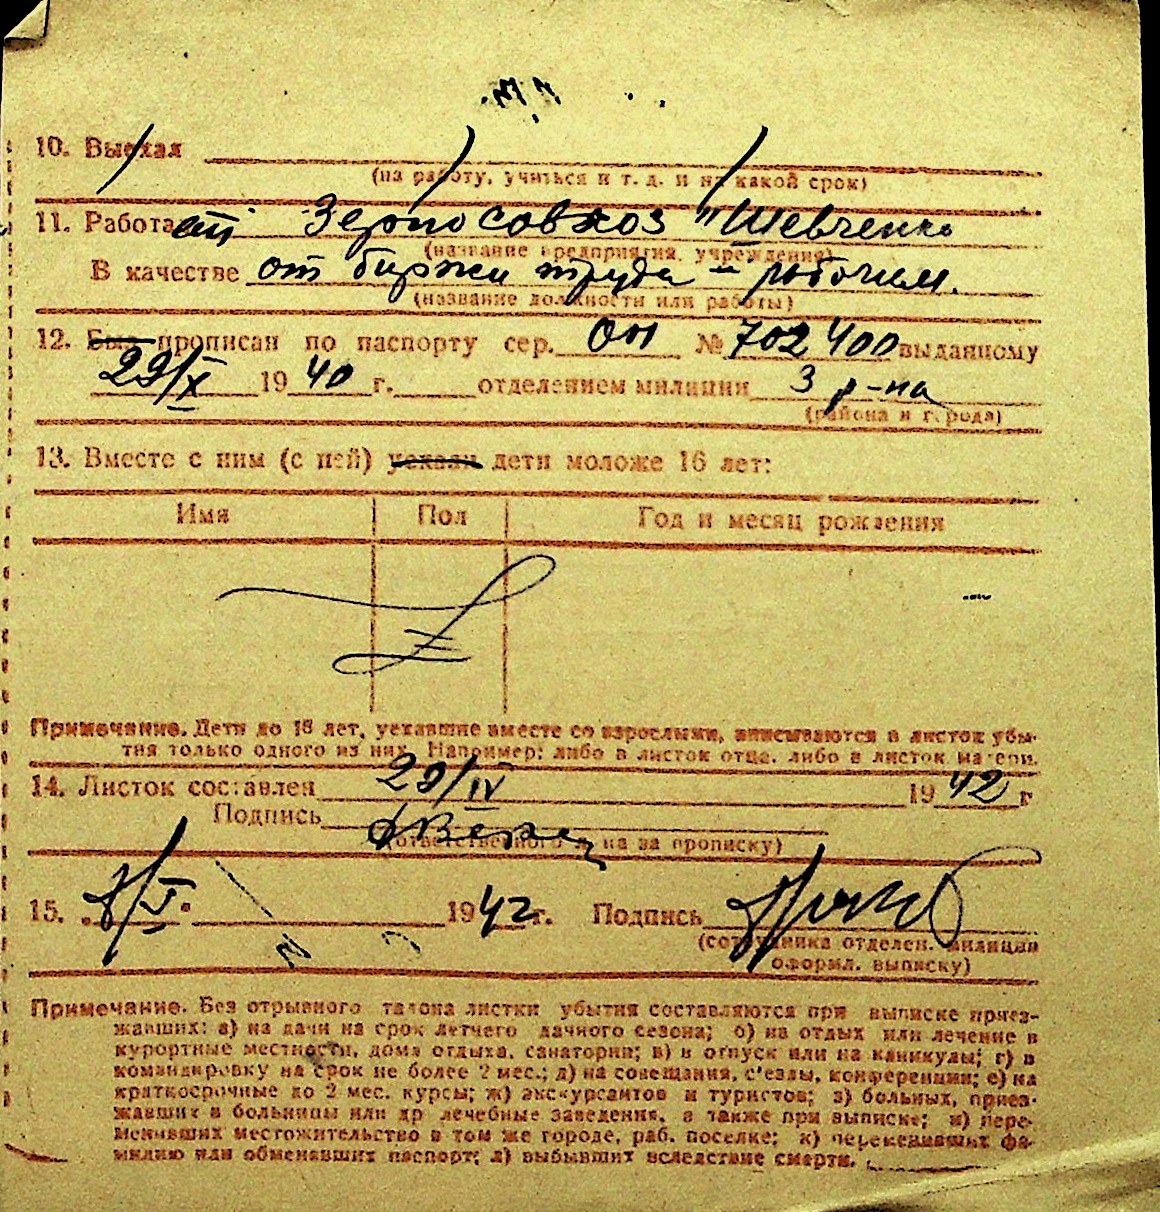 10. Выехал
(на работу, учиться и т. д. и на какой срок)
11. Работает Зерносовхоз "Шевченко
(название предприятия, учреждения)
В качестве от биржи труда – рабочим.
(название должности или работы)
12. Был прописан по паспорту сер. ОН № 702400 выданному
29/X 1940 г. отделением милиции 3 р-на
(района и города)
13. Вместе с ним (с ней) уехали дети моложе 16 лет:
Имя Пол Год и месяц рождения
Примечание. Дети до 16 лет, уехавшие вместе со взрослыми, вписываются в листок убы-
тия только одного из них. Например: либо в листок отца, либо в листок матери.
14. Листок составлен 29/IV 1942 г
Подпись
(ответственного лица за прописку)
15. 1942 г. Подпись
(сотрудника отделен. милиции
оформл. выписку)
Примечание. Без отрывного талона листки убытия составляются при выписке приез-
жавших: а) на дачи на срок летнего дачного сезона; б) на отдых или лечение в
курортные местности, дома отдыха, санатории; в) в отпуск или на каникулы; г) в
командировку на срок не более 2 мес.; д) на совещания, с'езды, конференции; е) на
краткосрочные до 2 мес. курсы; ж) экскурсантов и туристов; з) больных, приез-
жавших в больницы или др лечебные заведения, а также при выписке; и) пере-
менивших местожительство в том же городе, раб. поселке; к) переменивших фа-
милию или обменявших паспорт; л) выбывших вследствие смерти.